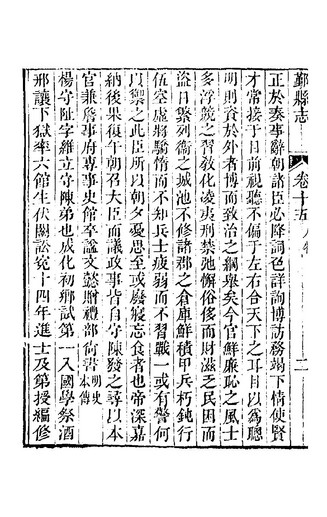 鄞縣志 卷十五 人物 二
正於奏事辭朝諸臣必降詞色詳詢博訪務竭下情使賢
才常接于目前視聽不偏于左右合天下之耳目以爲聰
明則資於外者博而致治之綱舉矣今官鮮廉恥之風士
多浮競之習敎化凌夷刑禁弛懈俗侈而財滋乏民困而
盜日繁列衞之城池不修諸郡之倉庫鮮積甲兵朽鈍行
伍空虛將驕惰而不知兵士疲弱而不習戰一或有警何
以禦之此臣所以朝夕憂思至或廢寢忘食者也帝深嘉
納後果復午朝召大臣面議政事皆自守陳發之尋以本
官兼詹事府專事史館卒諡文懿贈禮部尚書明史本傳
楊守阯字維立守陳弟也成化初鄉試第一入國學祭酒
邢讓下獄率六館生伏闕訟冤十四年進士及第授編修